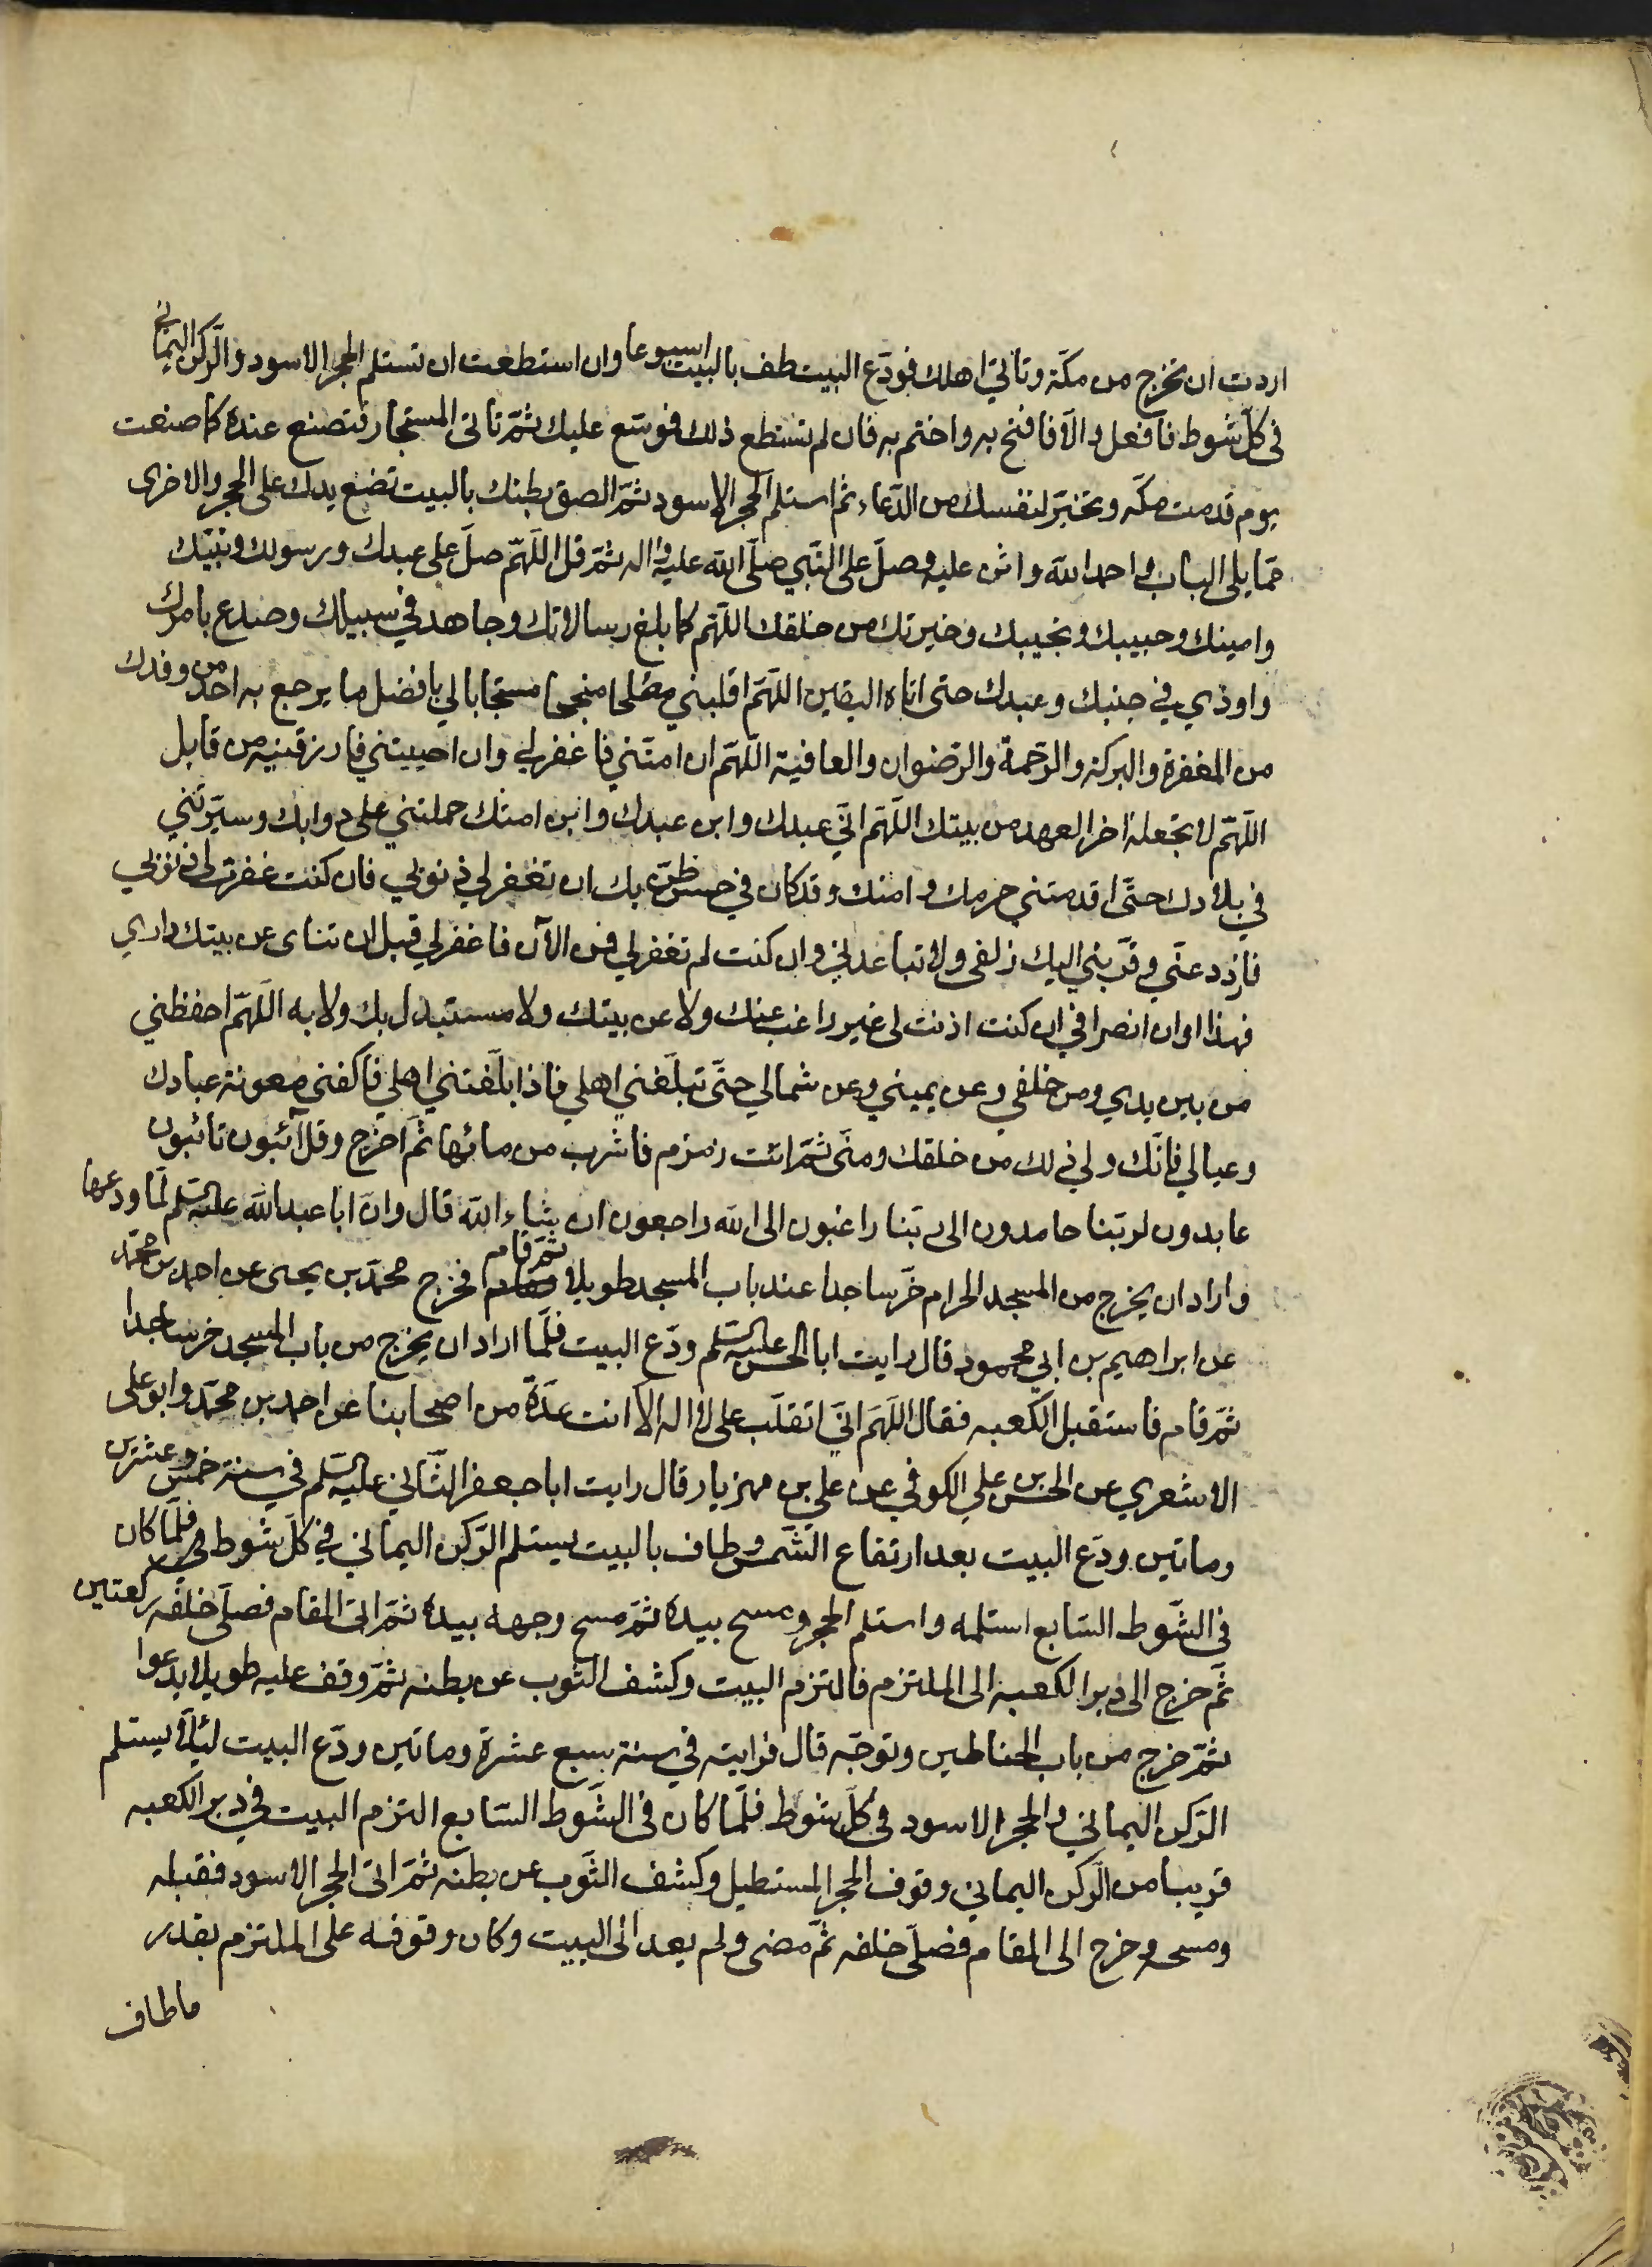 اردت ان تخرج من مكّة وتأتي اهلك فودّع البيت طف بالبيت اسبوعا وان استطعت ان تستلم الحجر الاسود والرّكن اليماني
في كلّ شوط فافعل والّا فافتح به واختم به فان لم تستطع ذلك فموسّع عليك ثمّ تاتى المستجار فتصنع عنده كما صنعت
يوم قدمت مكّه وتخيّر لنفسك من الدّعاء ثم استلم الحجر الاسود ثمّ الصق بطنك بالبيت تضع يدك على الحجر والاخرى
ممّا يلى الباب واحمد الله واثن عليه وصلّ على النّبي صلّى الله عليه واله ثمّ قل اللّهمّ صلّ على عبدك ورسولك ونبيّك
وامينك وحبيبك ونجيبك وخيرتك من خلقك اللّهم كما بلغ رسالاتك وجاهد في سبيلك وصدع بامرك
واوذي في جنبك وعبدك حتى اتاه اليقين اللّهمّ اقلبني مفلحا منجحا مستجابا لي بافضل ما يرجع به احد من وفدك
من المغفرة والبركة والرّحمة والرّضوان والعافية اللّهمّ ان امتّني فاغفر لي وان احييتني فارزقنيه من قابل
اللّهمّ لا تجعله اخر العهد من بيتك اللّهمّ انّي عبدك وابن عبدك وابن امتك حملتني على دوابك وسيّرتني
في بلادك حتّى اقدمتني حرمك وامنك وقد كان في حسن ظنّى بك ان تغفر لي ذنوبي فان كنت غفرت لي ذنوبي
فازدد عنّي وقرّبني اليك زلفى ولا تباعدني وان كنت لم تغفر لي فمن الآن فاغفر لي قبل ان تناى عن بيتك داري
فهذا اوان انصرافي ان كنت اذنت لى غير راغب عنك ولا عن بيتك ولا مستبدل بك ولا به اللّهمّ احفظني
من بين يدي ومن خلفي وعن يميني وعن شمالي حتّى تبلّغني اهلي فاذا بلّغتني اهلي فاكفني معونة عبادك
وعيالي فانّك ولي ذلك من خلقك ومنّى ثمّ ائت زمزم فاشرب من مائها ثمّ اخرج وقل آئبون تائبون
عابدون لربّنا حامدون الى ربّنا راغبون الى الله راجعون ان شاء الله قال وانّ ابا عبد الله عليه السلم لمّا ودعها
واراد ان يخرج من المسجد الحرام خرّ ساجدا عند باب المسجد طويلا ثمّ قام فخرج محمّد بن يحيى عن احمد بن محمّد
عن ابراهيم بن ابي محمود قال رايت ابا الحسن عليه السلم ودّع البيت فلّما اراد ان يخرج من باب المسجد خر ساجدا
ثمّ قام فاستقبل الكعبه فقال اللّهمّ انّي اتقلّب على لا اله الّا انت عدّة من اصحابنا عن احمد بن محمّد وابو على
الاشعري عن الحسن بن علي الكوفي عن علي بن مهزيار قال رايت ابا جعفر الثّاني عليه السلم في سنة خمس وعشرين
وماتين ودّع البيت بعد ارتفاع الشّمس وطاف بالبيت يستلم الرّكن اليماني في كلّ شوط فلمّا كان
فى الشّوط السّابع استلمه واستلم الحجر ومسح بيده ثمّ مسح وجهه بيده ثمّ اتى المقام فصلّى خلفه ركعتين
ثمّ خرج الى دبر الكعبه الى الملتزم فالتزم البيت وكشف الثوب عن بطنه ثمّ وقف عليه طويلا يدعوا
ثمّ خرج من باب الحناطين وتوجّه قال فرايته في سنة سبع عشرة وماتين ودّع البيت ليلاً يستلم
الرّكن اليماني والحجر الاسود فى كلّ شوط فلّما كان فى الشّوط السّابع التزم البيت في دبر الكعبه
قريبا من الرّكن اليماني وفوق الحجر المستطيل وكشف الثّوب عن بطنه ثمّ اتى الحجر الاسود فقبله
ومسحه وخرج الى المقام فصلّى خلفه ثمّ مضى ولم يعد الى البيت وكان وقوفه على الملتزم بقدر
ماطاف